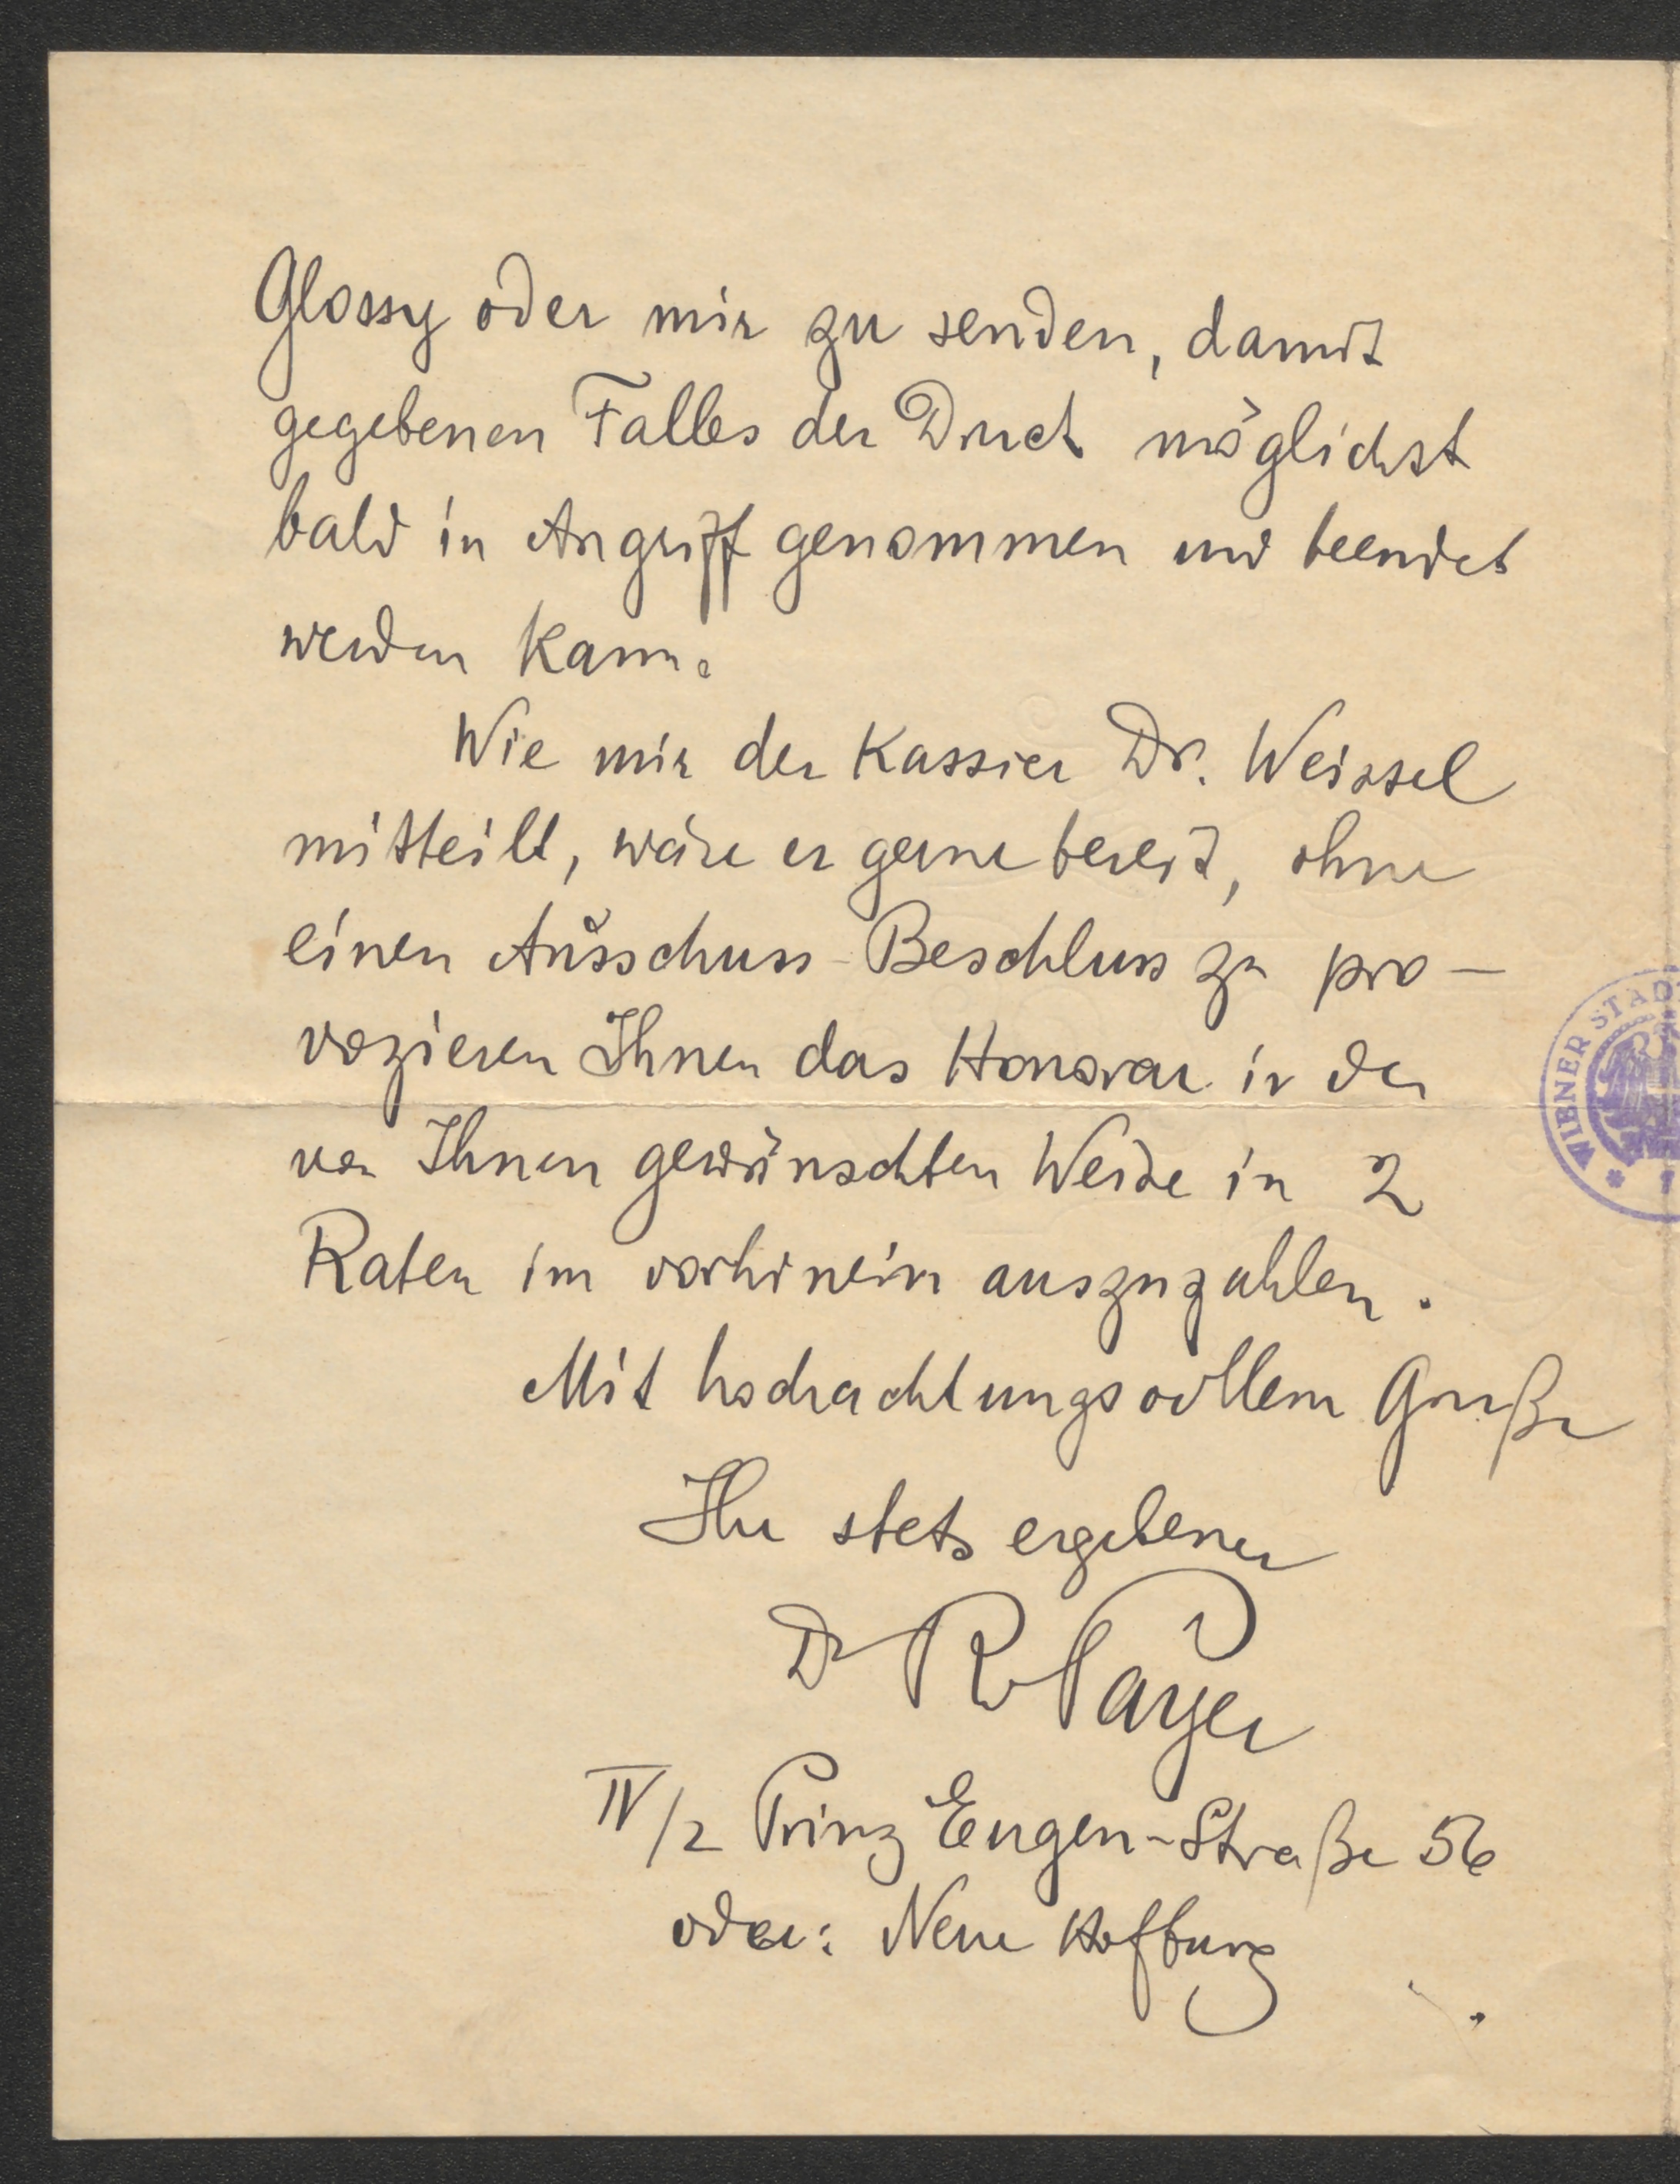 Glossy oder mir zu senden, damit
gegebenen Falles der Druck möglichst
bald in Angriff genommen und beendet
werden kann.
Wie mir der Kassier Dr. Weissel
mitteilt, wäre er gerne bereit, ohne
einen Ausschuss-Beschluss zu pro-
vozieren Ihnen das Honorar in der
von Ihnen gewünschten Weise in 2
Raten im vorhinein auszuzahlen.
Mit hochachtungsvollem Gruße
Ihr stets ergebener
Dr R Payer
IV/2 Prinz Eugen-Straße 56
oder: Neue Hofburg
WIENER STAD